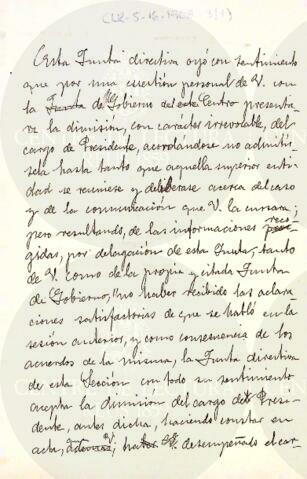 Esta Junta directiva oyó con sentimiento
que por una cuestión personal de V. con
la Junta de Gobierno del este Centro presenta-
ra la dimisión, con carácter irrevocable, del
cargo de Presidente, acordandose no admitír-
sela hasta tanto que aquella superior enti-
dad se reuniese y deliberase acerca del caso
y de la comunicación que V. la cursara;
pero resultando, de las informaciones reco-
gidas, por delegación de esta Junta, tanto
de V. como de la propia y citada Junta
de Gobierno, no haber recibido las aclara-
ciones satisfactorias de que se habló en la
sesion anterior, y como consecuencia de los
acuerdos de la misma, la Junta directiva
de esta Sección con todo su sentimiento
acepta la dimision del cargo de Presi-
dente, antes dicha, haciendo constar en
acta, además, haber V. desempeñado el car-